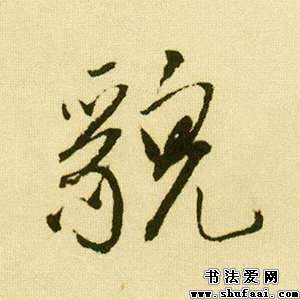 貌
书法爱网
www.shufaai.com